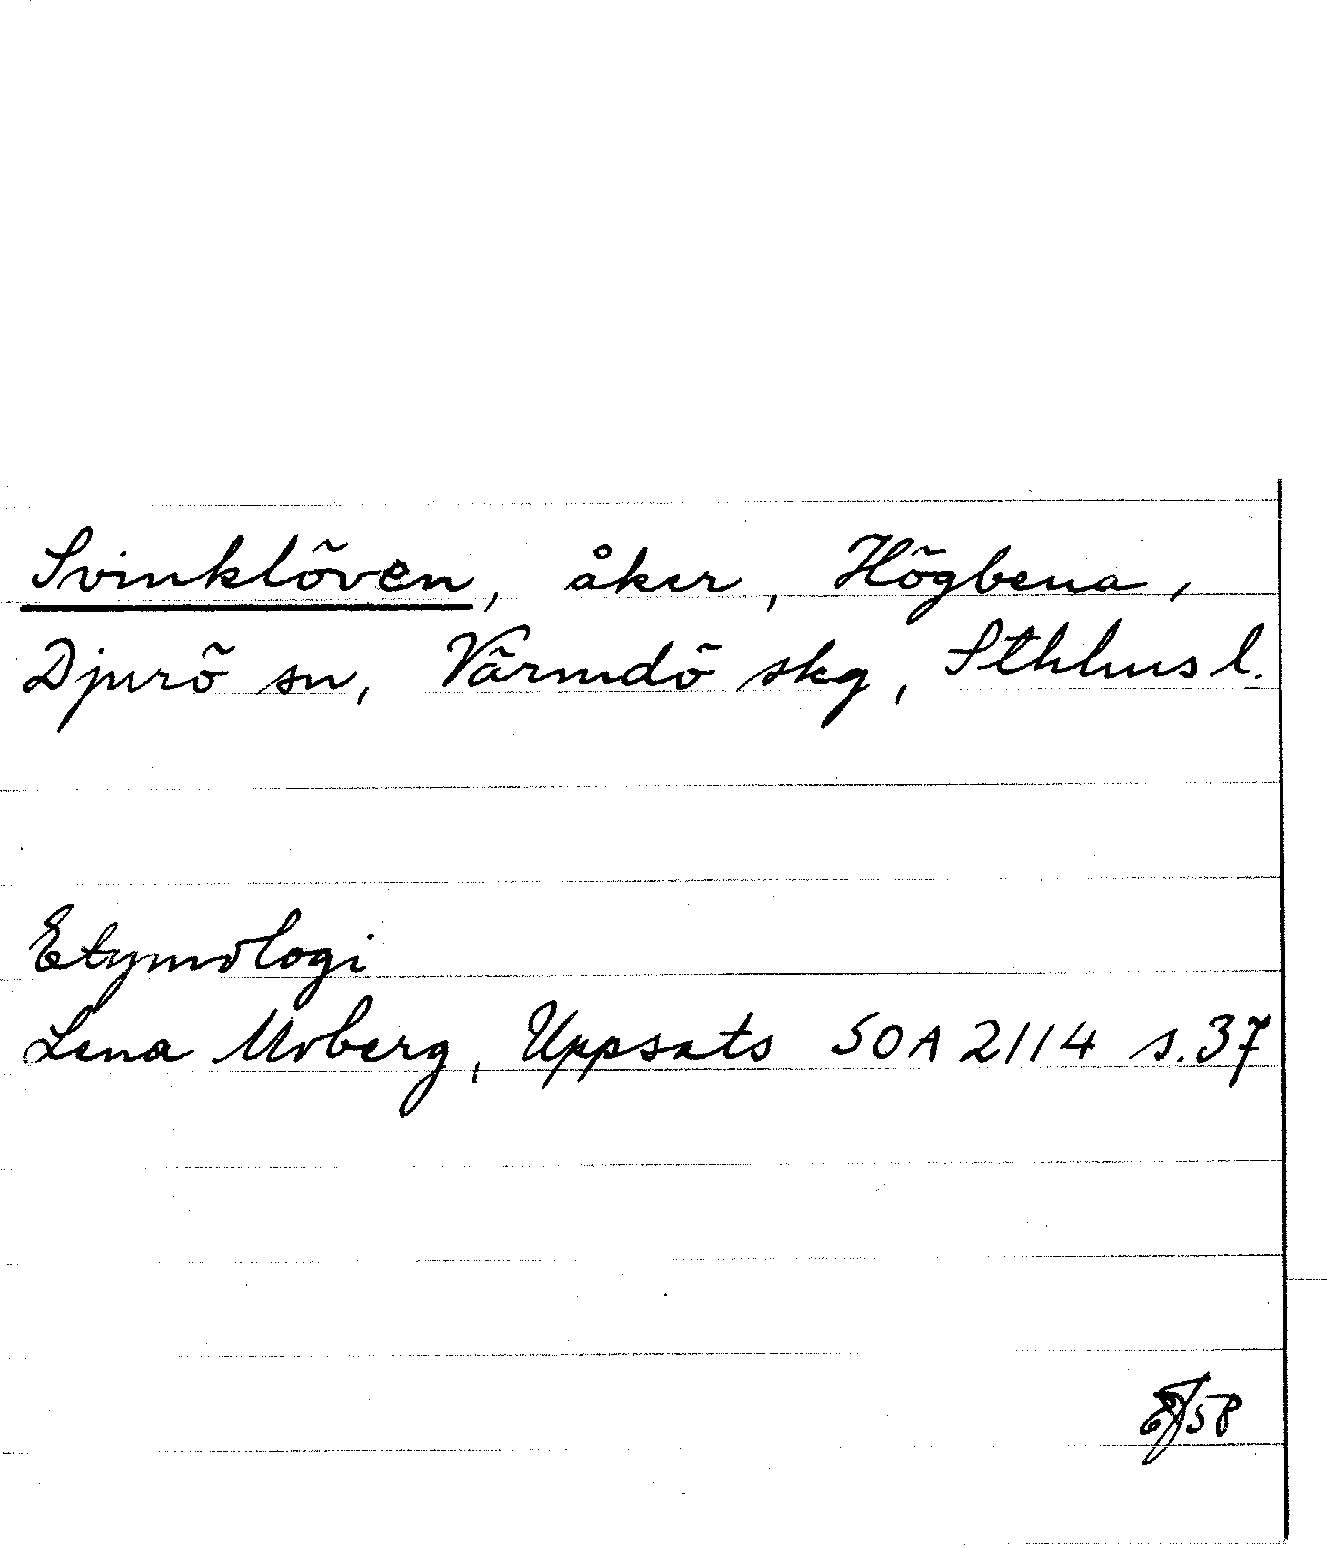 Svinklöven, åker, Högbena,
Djurö sn, Värmdö skg, Sthlms l.
Etymologi
Lena Moberg, Uppsats SOA 2114 s.37